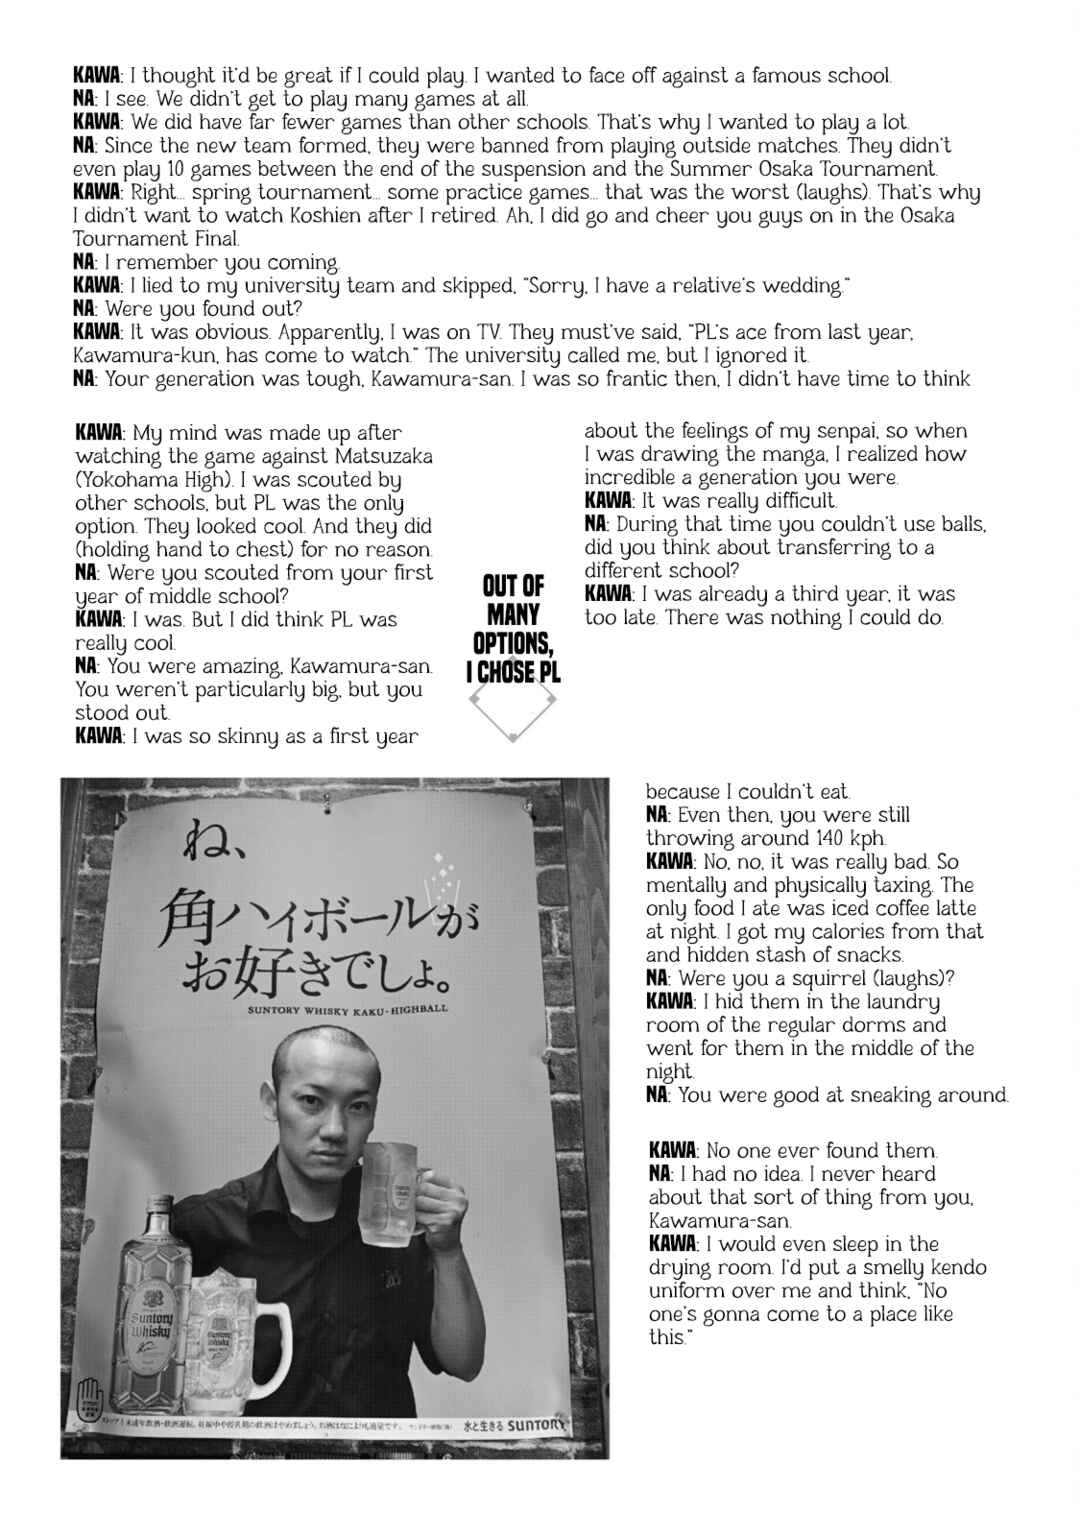 KAWA: I thought it'd be great if I could play. I wanted to face off against a famous school.
NA: I see. We didn't get to play many games at all.
KAWA: We did have far fewer games than other schools. That's why I wanted to play a lot.
NA: Since the new team formed, they were banned from playing outside matches. They didn't
even play 10 games between the end of the suspension and the Summer Osaka Tournament.
KAWA: Right... spring tournament... some practice games... that was the worst (laughs). That's why
I didn't want to watch Koshien after I retired. Ah, I did go and cheer you guys on in the Osaka
Tournament Final.
NA: I remember you coming.
KAWA: I lied to my university team and skipped, "Sorry, I have a relative's wedding."
NA: Were you found out?
KAWA: It was obvious. Apparently, I was on TV. They must've said, "PL's ace from last year,
Kawamura-kun, has come to watch." The university called me, but I ignored it.
NA: Your generation was tough, Kawamura-san. I was so frantic then, I didn't have time to think
about the feelings of my senpai, so when
I was drawing the manga, I realized how
incredible a generation you were.
KAWA: It was really difficult.
NA: During that time you couldn't use balls,
did you think about transferring to a
different school?
KAWA: I was already a third year, it was
too late. There was nothing I could do.
OUT OF
MANY
OPTIONS,
I CHOSE PL
KAWA: My mind was made up after
watching the game against Matsuzaka
(Yokohama High). I was scouted by
other schools, but PL was the only
option. They looked cool. And they did
(holding hand to chest) for no reason.
NA: Were you scouted from your first
year of middle school?
KAWA: I was. But I did think PL was
really cool.
NA: You were amazing, Kawamura-san.
You weren't particularly big, but you
stood out.
KAWA: I was so skinny as a first year
because I couldn't eat.
NA: Even then, you were still
throwing around 140 kph.
KAWA: No, no, it was really bad. So
mentally and physically taxing. The
only food I ate was iced coffee latte
at night. I got my calories from that
and hidden stash of snacks.
NA: Were you a squirrel (laughs)?
KAWA: I hid them in the laundry
room of the regular dorms and
went for them in the middle of the
night.
NA: You were good at sneaking around.
KAWA: No one ever found them.
NA: I had no idea. I never heard
about that sort of thing from you,
Kawamura-san.
KAWA: I would even sleep in the
drying room. I'd put a smelly kendo
uniform over me and think, "No
one's gonna come to a place like
this."
ね、
角ハイボールが
お好きでしょ。
SUNTORY WHISKY KAKU-HIGHBALL
Suntory
Whisky
Suntory
Whisky
水と生きる SUNTORY